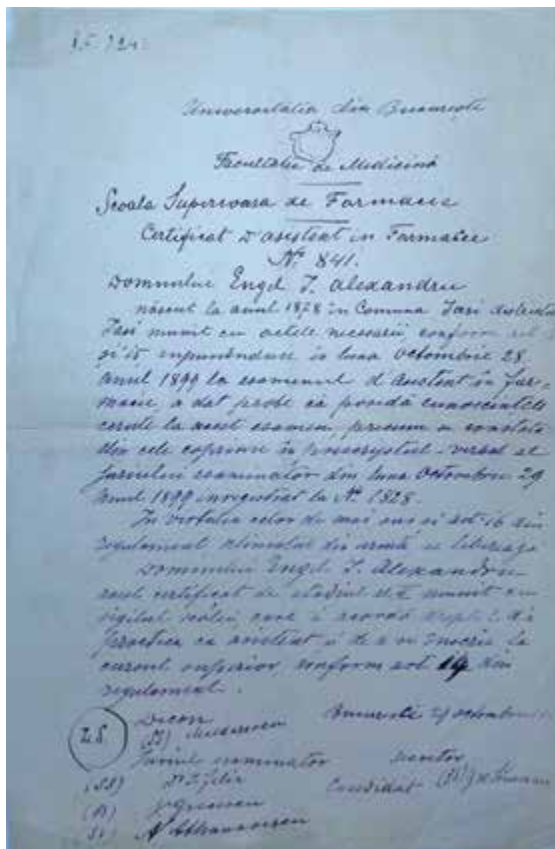 Universitatea din Bucuresti
Facultatea de Medicină
Scoala Superioara de Farmacie
Certificat d'asistent in Farmacie
No 841.
Domnului Engel I. Alexandru
născut la anul 1878 in Comuna Iasi districtul
Iasi munit cu actele necesarii conform art
si 15, supunêndu-se in luna Octombrie 28
anul 1899 la esamenul d'asistent in far-
macie, a dat probe că posedă cunoscintele
cerute la acest esamen, precum se constată
din cele coprinse in procesul-verbal al
juriului esaminator din luna Octombrie 29
anul 1899 inregistrat la No. 1828.
In virtutea celor de mai sus si art. 16 din
regulament se libereaza
Domnului Engel I. Alexandru
acest certificat de munit cu
sigilul scólei, care i acordă dreptul de
practica ca asistent si de a se inscrie la
cursul superior, conform art 19 din
regulament.
Decan Bucuresti 29 Octombrie
L.S.
(SS)
Juriul esaminator
(SS) Dr Candidat (SS)
(SS)
SS) Athanasescu